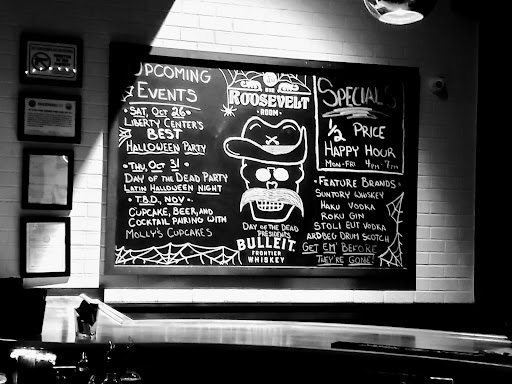 UPCOMING
EVENTS
• SAT, OCT 26 •
LIBERTY CENTER'S
BEST
HALLOWEEN PARTY
• THU, OCT 31 •
DAY OF THE DEAD PARTY
LATIN HALLOWEEN NIGHT
• T.B.D, NOV •
CUPCAKE, BEER, AND
COCKTAIL PAIRING WITH
MOLLY'S CUPCAKES
ROOSEVELT
• ROOM •
DAY OF THE DEAD
PRESIDENTS
BULLEIT.
FRONTIER
WHISKEY
SPECIALS
1/2 PRICE
HAPPY HOUR
MON-FRI 4PM-7PM
• FEATURE BRANDS •
SUNTORY WHISKEY
HAKU VODKA
ROKU GIN
STOLI ELIT VODKA
ARDBEG DRUM SCOTCH
GET EM' BEFORE
THEY'RE GONE!